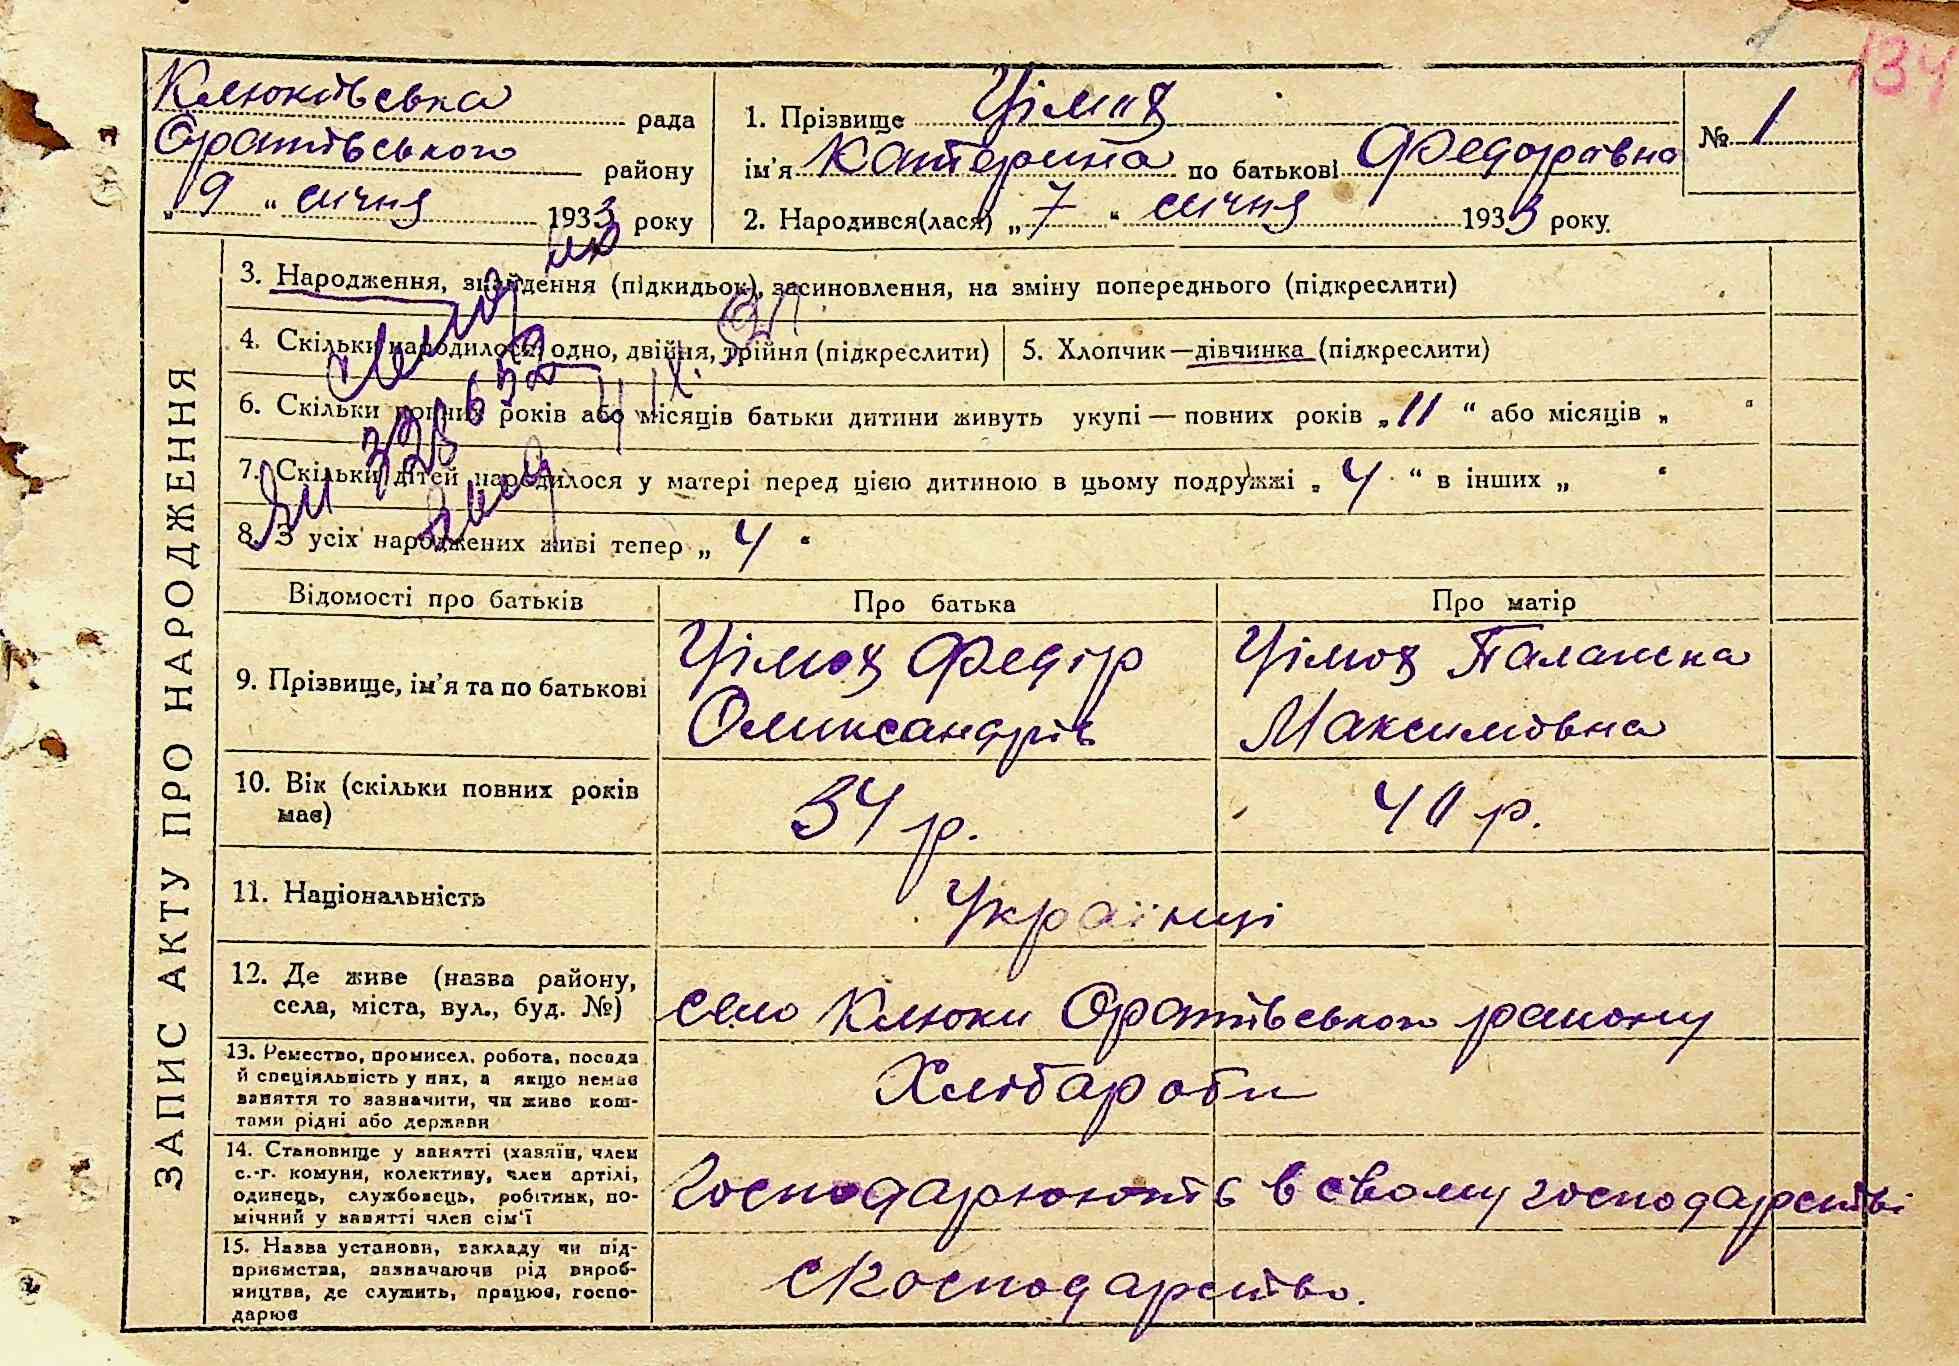 134
Клюківська рада
Оратівського району
„ 9 “ січня 1933 року
1. Прізвище Цімох
ім'я Катерина по батькові Федорівна
2. Народився(лася) „ 7 “ січня 1933 року.
№ 1
ЗАПИС АКТУ ПРО НАРОДЖЕННЯ
3. Народження, знайдення (підкидьок), засиновлення, на зміну попереднього (підкреслити)
4. Скільки народилося: одно, двійня, трійня (підкреслити)
5. Хлопчик—дівчинка (підкреслити)
6. Скільки повних років або місяців батьки дитини живуть укупі — повних років „ 11 “ або місяців „ “
7. Скільки дітей народилося у матері перед цією дитиною в цьому подружжі „ 4 “ в інших „ “
8. З усіх народжених живі тепер „ 4 “
Відомості про батьків
Про батька
Про матір
9. Прізвище, ім'я та по батькові
Цімох Федір
Олександрів
Цімох Палажка
Максимівна
10. Вік (скільки повних років
має)
34 р.
40 р.
11. Національність
Українці
12. Де живе (назва району,
села, міста, вул., буд. №)
село Клюки Оратівського району
13. Ремество, промисел, робота, посада
й спеціяльність у них, а якщо немає
заняття то зазначити, чи живе кош-
тами рідні або держави
Хлібароби
14. Становище у занятті (хазяїн, член
с.-г. комуни, колективу, член артілі,
одинець, службовець, робітник, по-
мічний у занятті член сім'ї
Господарюють в свому господарстві
15. Назва установи, закладу чи під-
приємства, зазначаючи рід вироб-
ництва, де служить, працює, госпо-
дарює
с/господарство.